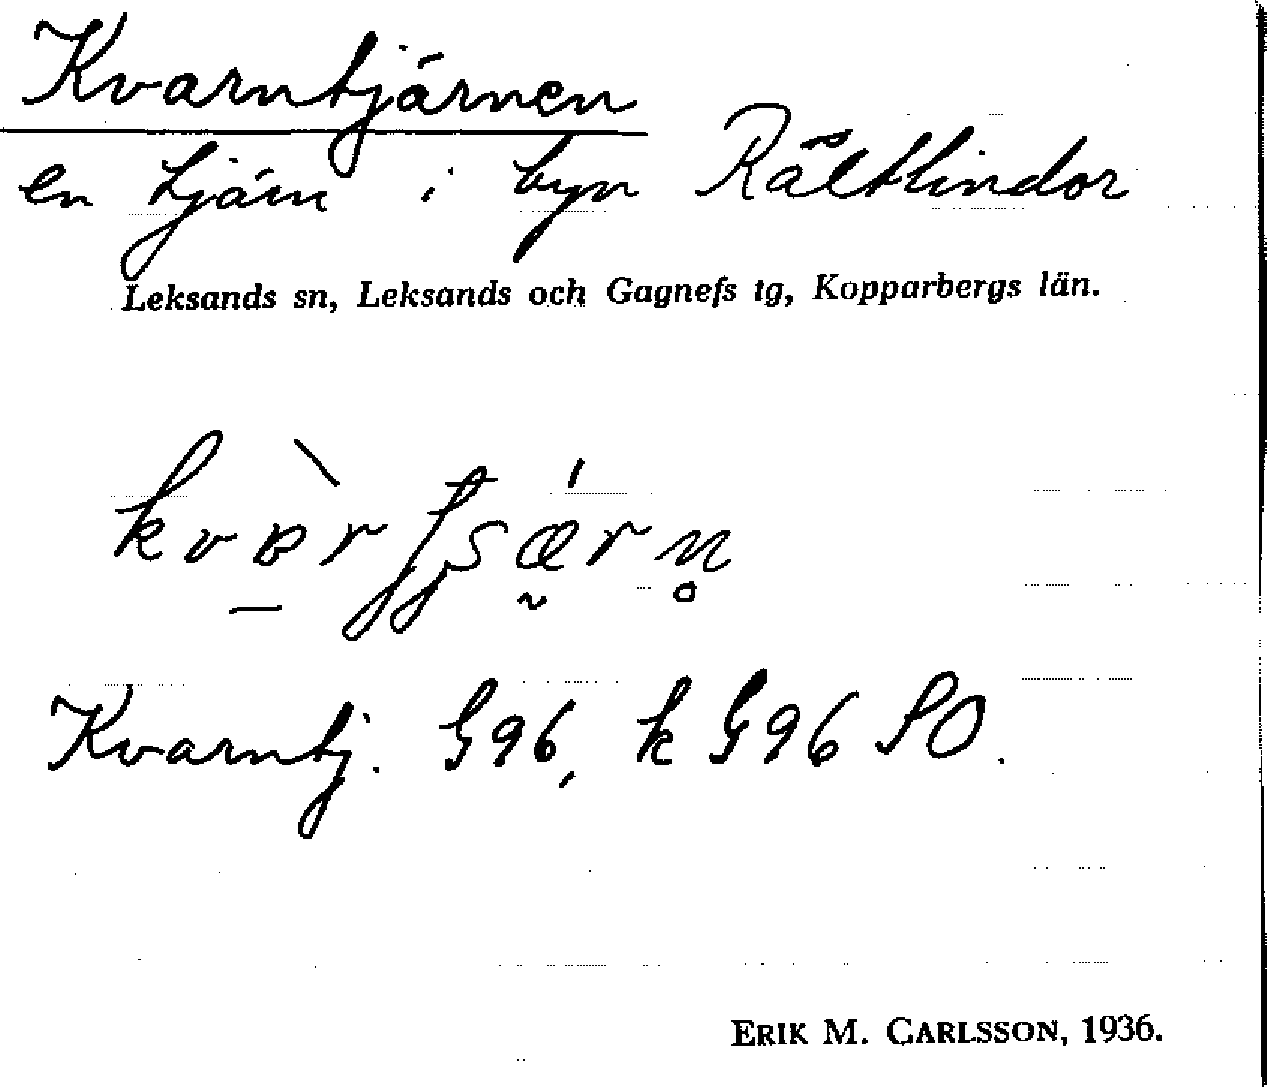 Kvarntjärnen
en tjärn i byn Rältlindor
Leksands sn, Leksands och Gagnefs tg, Kopparbergs län.
Kvarntj. G96, k G96 SO.
ERIK M. CARLSSON, 1936.